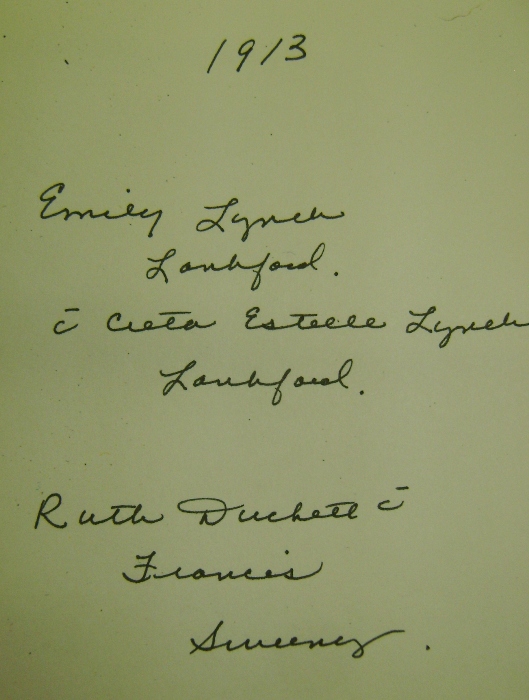 1913
Emily Lynch
Lankford.
c̄ Creta Estelle Lynch
Lankford.
Ruth Duckett c̄
Francis
Sweeney.